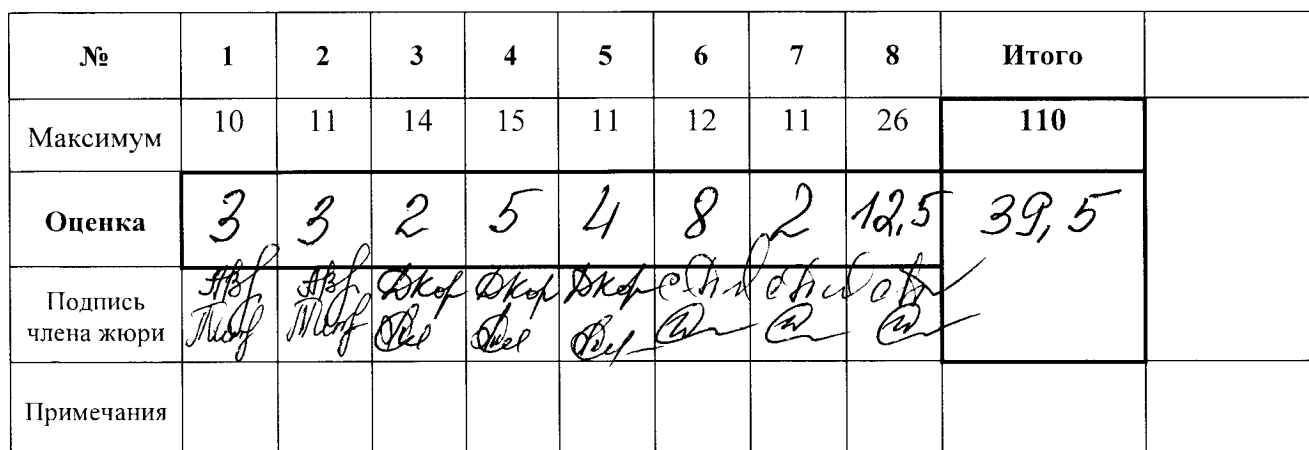 № 1 2 3 4 5 6 7 8 Итого
Максимум 10 11 14 15 11 12 11 26 110
Оценка 3 3 2 5 4 8 2 12,5 39,5
Подпись
члена жюри
Примечания